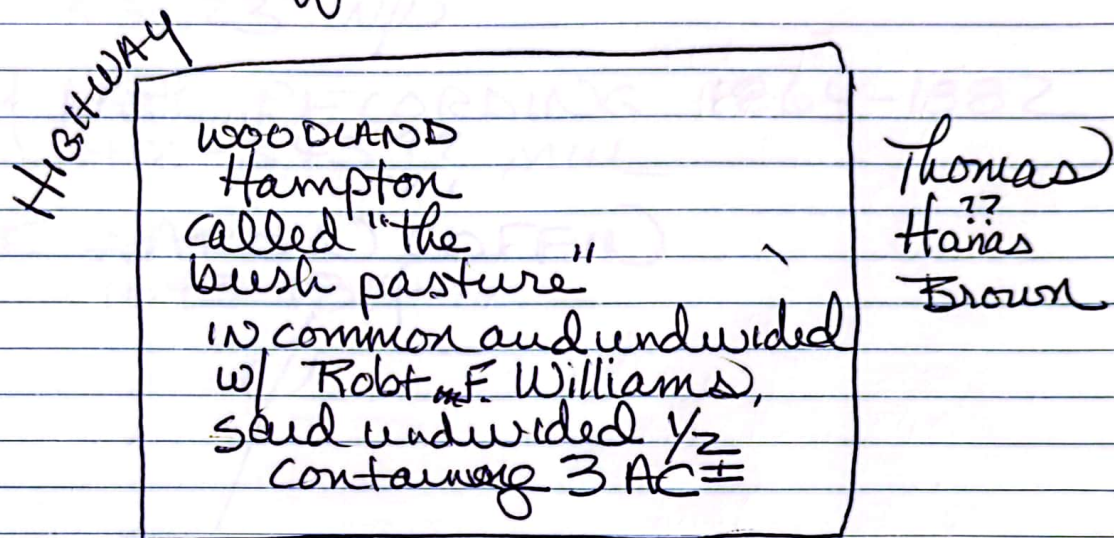 HIGHWAY
WOODLAND
Hampton
called "the
bush pasture"
IN common and undivided
w/ Robt F. Williams,
said undivided 1/2
containing 3 AC±
Thomas
??
Hanas
Brown